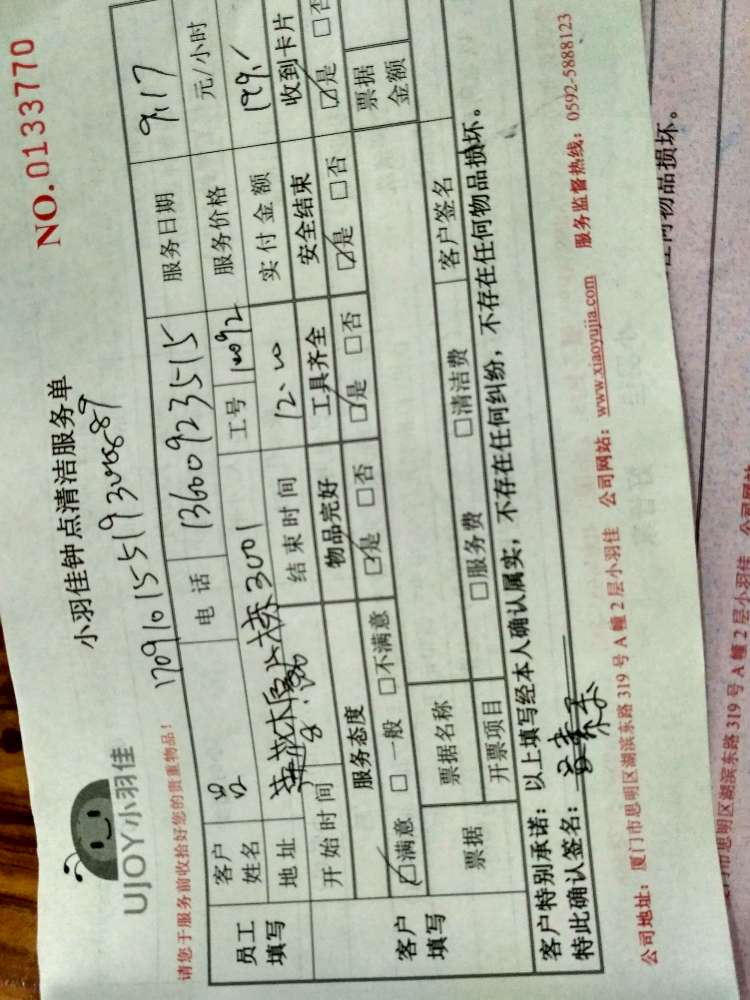 NO.0133770
小羽佳钟点清洁服务单
UJOY小羽佳
请您于服务前收拾好您的贵重物品！
员工填写
客户姓名 吕 电话 13600923515 服务日期 9.17
工号 服务价格 元/小时
地址 3001
开始时间 结束时间 12.00 实付金额 199.
客户填写
服务态度 物品完好 工具齐全 安全结束 收到卡片
☑满意 □一般 □不满意 ☑是 □否 ☑是 □否 ☑是 □否 ☑是 □否
票据 票据名称 票据金额
开票项目 □服务费 □清洁费 客户签名
客户特别承诺：以上填写经本人确认属实，不存在任何纠纷，不存在任何物品损坏。
特此确认签名：
公司地址：厦门市思明区湖滨东路319号A幢2层小羽佳 公司网站：www.xiaoyujia.com 服务监督热线：0592-5888123
任何物品损坏。
门市思明区湖滨东路319号A幢2层小羽佳 公司网站